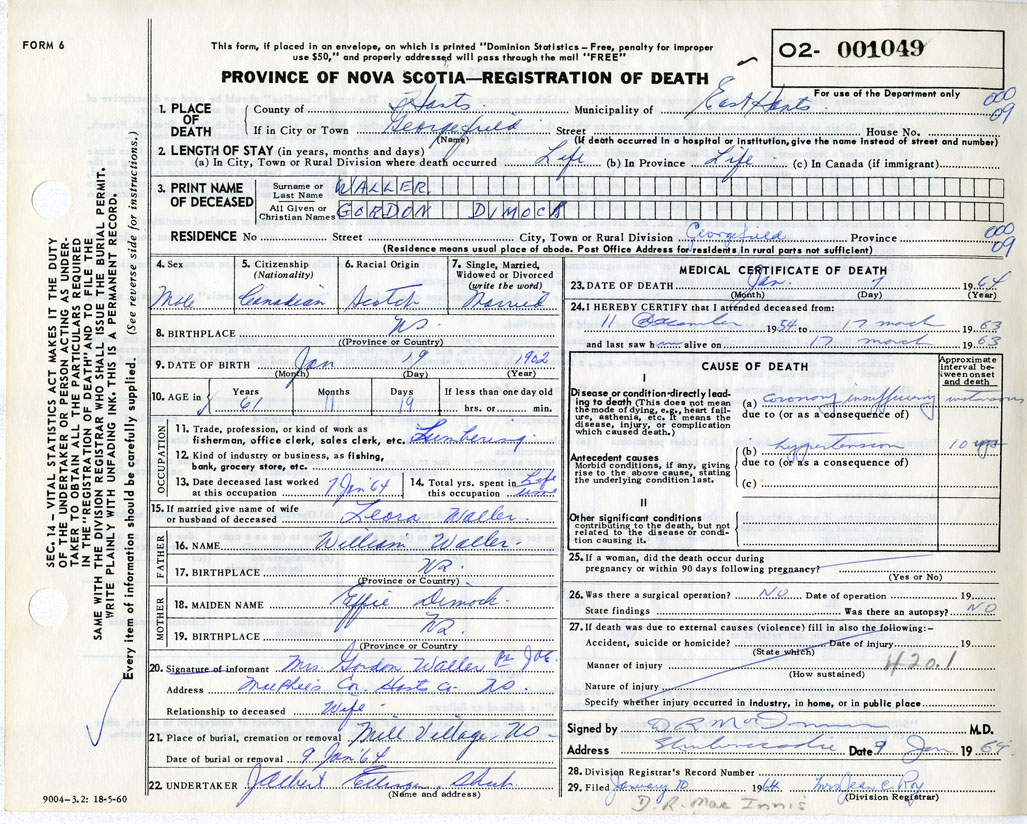 FORM 6
This form, if placed in an envelope, on which is printed "Dominion Statistics – Free, penalty for improper
use $50," and properly addressed will pass through the mail "FREE"
O2- 001049
For use of the Department only
PROVINCE OF NOVA SCOTIA—REGISTRATION OF DEATH
000
09
1. PLACE OF DEATH
County of Hants Municipality of East Hants
If in City or Town Georgefield Street House No.
(Name) (If death occurred in a hospital or institution, give the name instead of street and number)
2. LENGTH OF STAY (in years, months and days)
(a) In City, Town or Rural Division where death occurred Life (b) In Province Life (c) In Canada (if immigrant)
3. PRINT NAME OF DECEASED
Surname or Last Name WALLER
All Given or Christian Names GORDON DIMOCK
RESIDENCE No Street City, Town or Rural Division Georgefield Province
000
09
(Residence means usual place of abode. Post Office Address for residents in rural parts not sufficient)
SEC. 14 – VITAL STATISTICS ACT MAKES IT THE DUTY
OF THE UNDERTAKER OR PERSON ACTING AS UNDER-
TAKER TO OBTAIN ALL THE PARTICULARS REQUIRED
IN THE "REGISTRATION OF DEATH" AND TO FILE THE
SAME WITH THE DIVISION REGISTRAR WHO SHALL ISSUE THE BURIAL PERMIT.
WRITE PLAINLY WITH UNFADING INK. THIS IS A PERMANENT RECORD.
Every item of information should be carefully supplied. (See reverse side for instructions.)
4. Sex Male
5. Citizenship (Nationality) Canadian
6. Racial Origin Scotch
7. Single, Married, Widowed or Divorced (write the word) Married
8. BIRTHPLACE NS
(Province or Country)
9. DATE OF BIRTH Jan 19 1902
(Month) (Day) (Year)
10. AGE in Years 61 Months 11 Days 19 If less than one day old
hrs. or min.
OCCUPATION
11. Trade, profession, or kind of work as
fisherman, office clerk, sales clerk, etc. Lumbering
12. Kind of industry or business, as fishing,
bank, grocery store, etc.
13. Date deceased last worked at this occupation 7 Jan '64
14. Total yrs. spent in this occupation Life time
15. If married give name of wife
or husband of deceased Leora Waller
FATHER
16. NAME William Waller
17. BIRTHPLACE NS
(Province or Country)
MOTHER
18. MAIDEN NAME Effie Dimock
19. BIRTHPLACE NS
(Province or Country
20. Signature of informant Mrs. Gordon Waller
Address MacPhee's Cor. Hants Co. NS.
Relationship to deceased Wife
21. Place of burial, cremation or removal Mill Village, NS
Date of burial or removal 9 Jan '64
22. UNDERTAKER
(Name and address)
9004–3.2: 18-5-60
MEDICAL CERTIFICATE OF DEATH
23. DATE OF DEATH Jan. 7 1964
(Month) (Day) (Year)
24. I HEREBY CERTIFY that I attended deceased from:
11 December 1954 to 17 march 1963
and last saw h alive on 17 march 1963
CAUSE OF DEATH
Approximate interval between onset and death
I
Disease or condition directly lead-
ing to death (This does not mean
the mode of dying, e.g., heart fail-
ure, asthenia, etc. It means the
disease, injury, or complication
which caused death.)
(a) Coronary insufficiency
due to (or as a consequence of)
Antecedent causes
Morbid conditions, if any, giving
rise to the above cause, stating
the underlying condition last.
(b) hypertension 10 yrs
due to (or as a consequence of)
(c)
II
Other significant conditions
contributing to the death, but not
related to the disease or condi-
tion causing it.
25. If a woman, did the death occur during
pregnancy or within 90 days following pregnancy?
(Yes or No)
26. Was there a surgical operation? NO Date of operation 19
State findings Was there an autopsy? NO
27. If death was due to external causes (violence) fill in also the following:–
Accident, suicide or homicide? Date of injury 19
(State which)
Manner of injury 420.1
(How sustained)
Nature of injury
Specify whether injury occurred in Industry, in home, or in public place
Signed by M.D.
Address Shubenacadie Date 9 Jan 1964
28. Division Registrar's Record Number
29. Filed January 10 1964 Mrs Jean C Roy
(Division Registrar)
D. R. Mac Innis